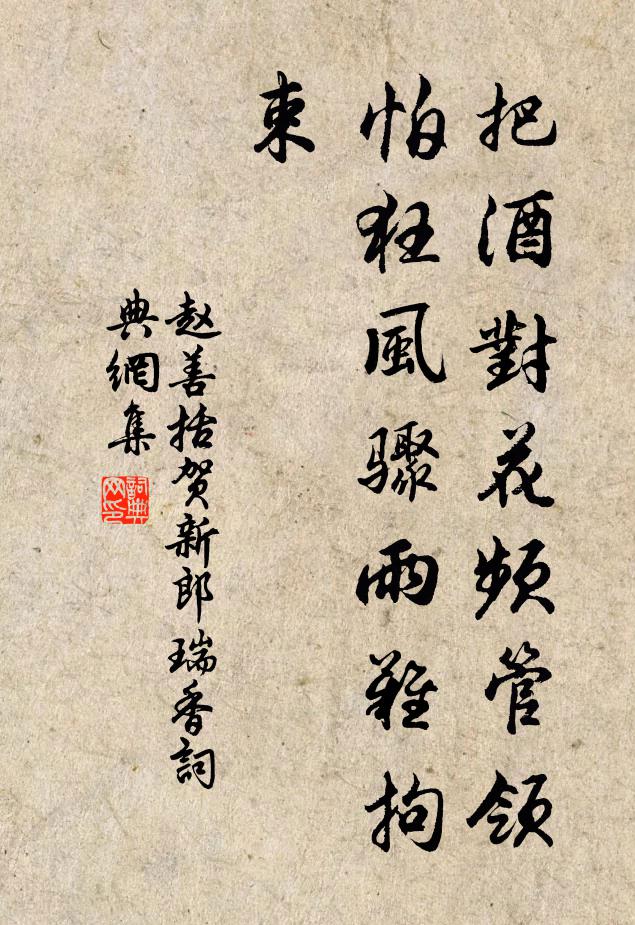 把酒對花頻管領
怕狂風驟雨難拘
束
赵善括贺新郎瑞香詞
典網集
詞典
网印